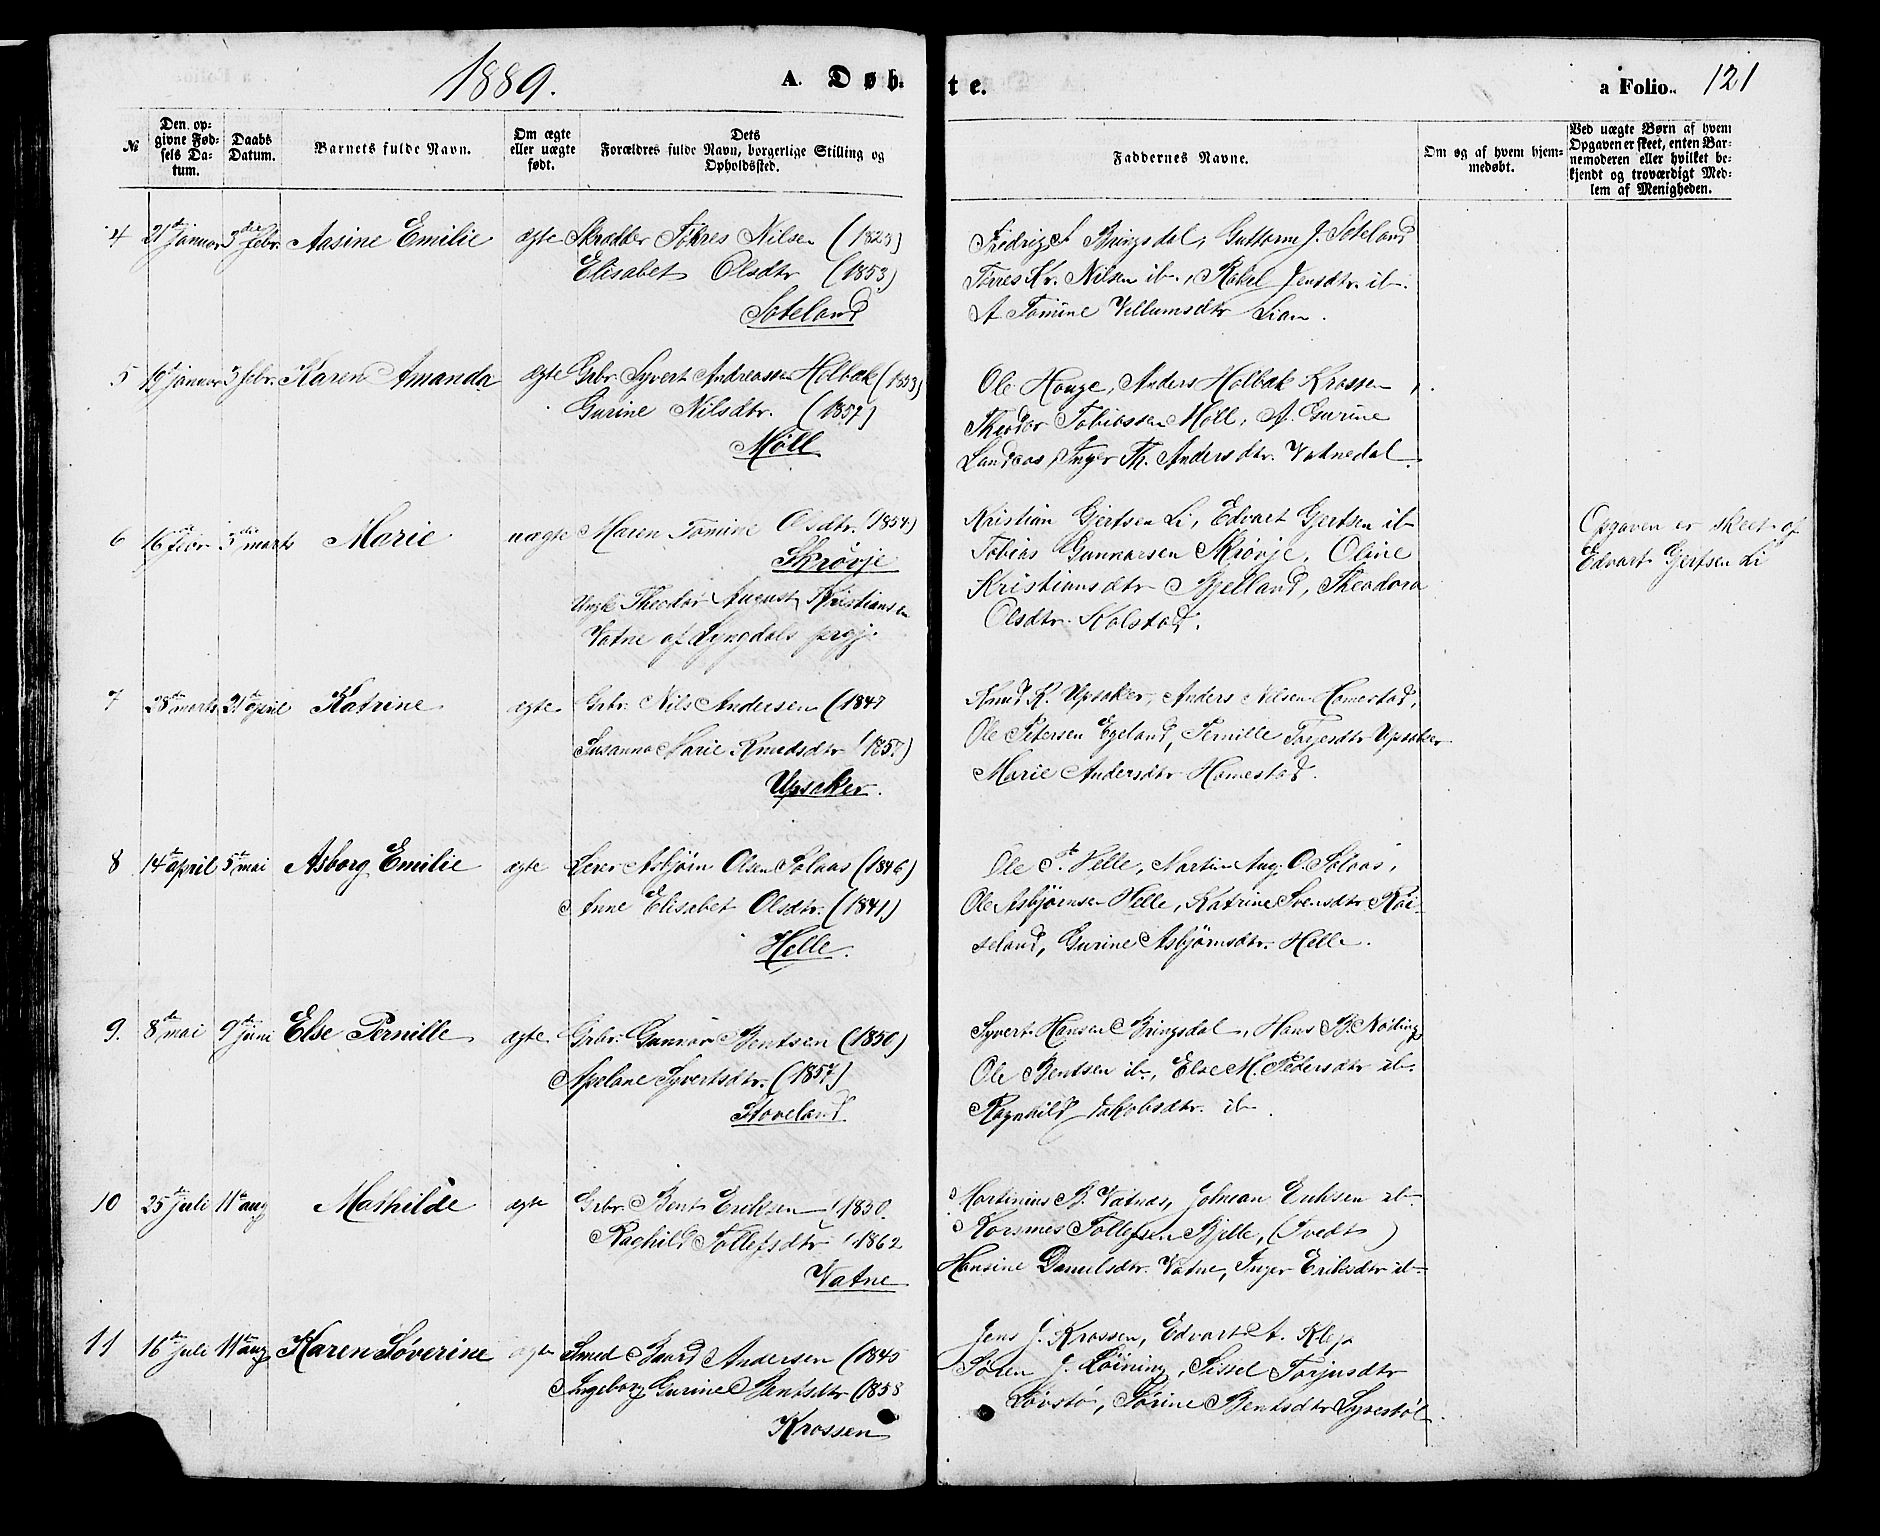 1889.
A. Døb
te.
a Folio. 121
№
Den op-
givne Fød-
sels Da-
tum.
Daabs
Datum.
Barnets fulde Navn.
Om ægte
eller uægte
født.
Dets
Forældres fulde Navn, borgerlige Stilling og
Opholdssted.
Faddernes Navne.
Om og af hvem hjem-
medøbt.
Ved uægte Børn af hvem
Opgaven er skeet, enten Bar-
nemoderen eller hvilket be-
kjendt og troværdigt Med-
lem af Menigheden.
4 21de januar 3die febr. Aasine Emilie ægte Skrædder Tørres Nilsen (1823)
Elisabet Olsdtr (1853)
Soteland
Fredrig Bringsdal, Guttorm J. Soteland
Tørres Kr. Nilsen ib., Rakel Jensdtr. ib.
A Tomine Villumsdtr Lian.
5 19de januar 3 febr. Karen Amanda ægte Gbr. Syvert Andreassen Holbæk (1853)
Gurine Nilsdtr. (1857)
Møll
Ole Houge, Anders Holbæk Krossen,
Theodor Tobiassen Møll, A. Gurine
Landaas, Inger Th. Andersdtr. Vatnedal
6 16de febr 3die marts Marie uægte Maren Tomine Olsdtr. (1854)
Skrøvje
Ungk. Theodor August Kristiansen
Vatne af Lyngdals prgj.
Kristian Gjertsen Li, Edvart Gjertsen ib
Tobias Gunnarsen Skrøvje, Oline
Kristiansdtr Bjelland, Theodora
Olsdtr. Kolstad.
Opgaven er skeet af
Edvart Gjertsen Li
7 28de marts 21de april Katrine ægte Gbr. Nils Andersen (1847
Susanna Marie Knudsdtr (1857)
Upsaker.
Knud K. Upsaker, Anders Nilsen Homestad,
Ole Petersen Egeland, Pernille Torjesdtr Upsaker
Marie Andersdtr Homestad.
8 14de april 5te mai Asborg Emilie ægte Lever Asbjørn Olsen Solaas (1846)
Anne Elisabet Olsdtr. (1841)
Helle.
Ole T. Helle, Martin Aug. O. Solaas,
Ole Asbjørnsen Helle, Katrine Svensdtr Roi-
seland, Gurine Asbjørnsdtr. Helle.
9. 8de mai 9de juni Else Pernille ægte Gbr. Gunnar Bentsen (1850)
Apelone Syvertsdtr. (1857)
Stoveland
Syvert Hansen Bringsdal, Hans B. Nøding
Ole Bentsen ib., Else M. Pedersdtr ib.
Ragnhild Jakobsdtr. ib.
10 25de juli 11te aug Mathilde ægte Gbr. Bent Eriksen (1850.
Raghild Tollefsdtr (1862
Vatne
Martinius B. Vatne, Johnean Eriksen ib
Rasmus Tollefsen Bjelle, (Tvedt)
Hansine Danielsdtr. Vatne, Inger Eriksdtr ib
11 16de juli 11te aug Karen Søverine ægte Smed Baard Andersen (1845
Ingeborg Gurine Bentsdtr (1858
Krossen
Jens J. Krossen, Edvart A. Klep
Søren J. Løining, Sissel Torjusdtr
Løvstø, Tørine Bentsdtr Syrestøl.